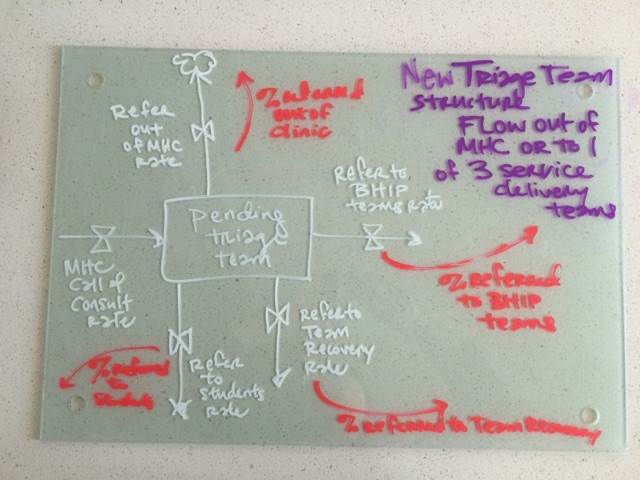 New Triage Team
structure
Flow out of
MHC or to 1
of 3 service
delivery
teams
Refer
out
of MHC
rate
% referred
out of
clinic
Refer to
BHIP
teams Rate
pending
triage
team
MHC
Call of
Consult
Rate
% referred
to BHIP
teams
Refer to
Team
Recovery
Rate
Refer
to
students
rate
% referred
to
students
% referred to Team Recovery